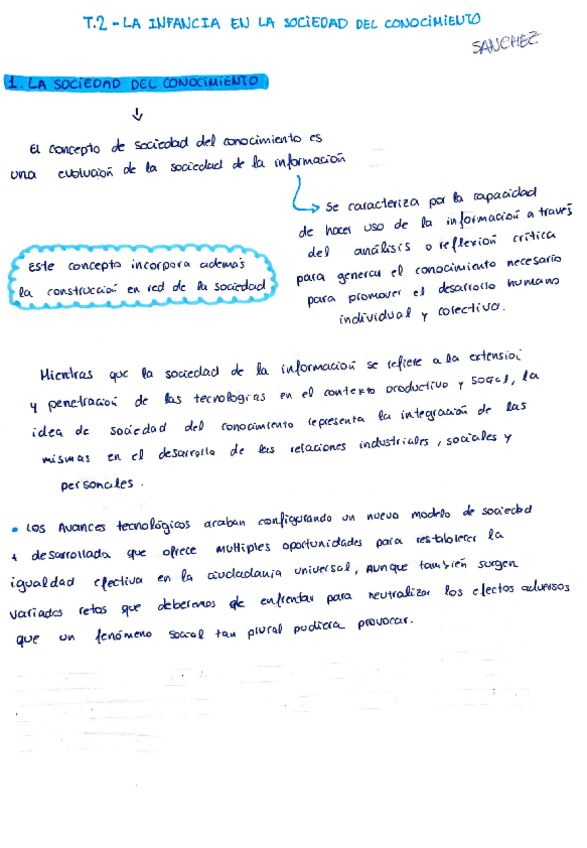 T.2 - LA INFANCIA EN LA SOCIEDAD DEL CONOCIMIENTO
SANCHEZ
1. LA SOCIEDAD DEL CONOCIMIENTO
El concepto de sociedad del conocimiento es
una evolución de la sociedad de la información
Se caracteriza por la capacidad
de hacer uso de la información a través
del análisis o reflexión crítica
para generar el conocimiento necesario
para promover el desarrollo humano
individual y colectivo.
Este concepto incorpora además
la construcción en red de la sociedad
Mientras que la sociedad de la información se refiere a la extensión
y penetración de las tecnologías en el contexto productivo y social, la
idea de sociedad del conocimiento representa la integración de las
mismas en el desarrollo de las relaciones industriales, sociales y
personales.
• Los Avances tecnológicos acaban configurando un nuevo modelo de sociedad
+ desarrollada que ofrece multiples oportunidades para restablecer la
igualdad efectiva en la ciudadanía universal, aunque también surgen
variados retos que deberemos de enfrentar para neutralizar los efectos adversos
que un fenómeno social tan plural pudiera provocar.